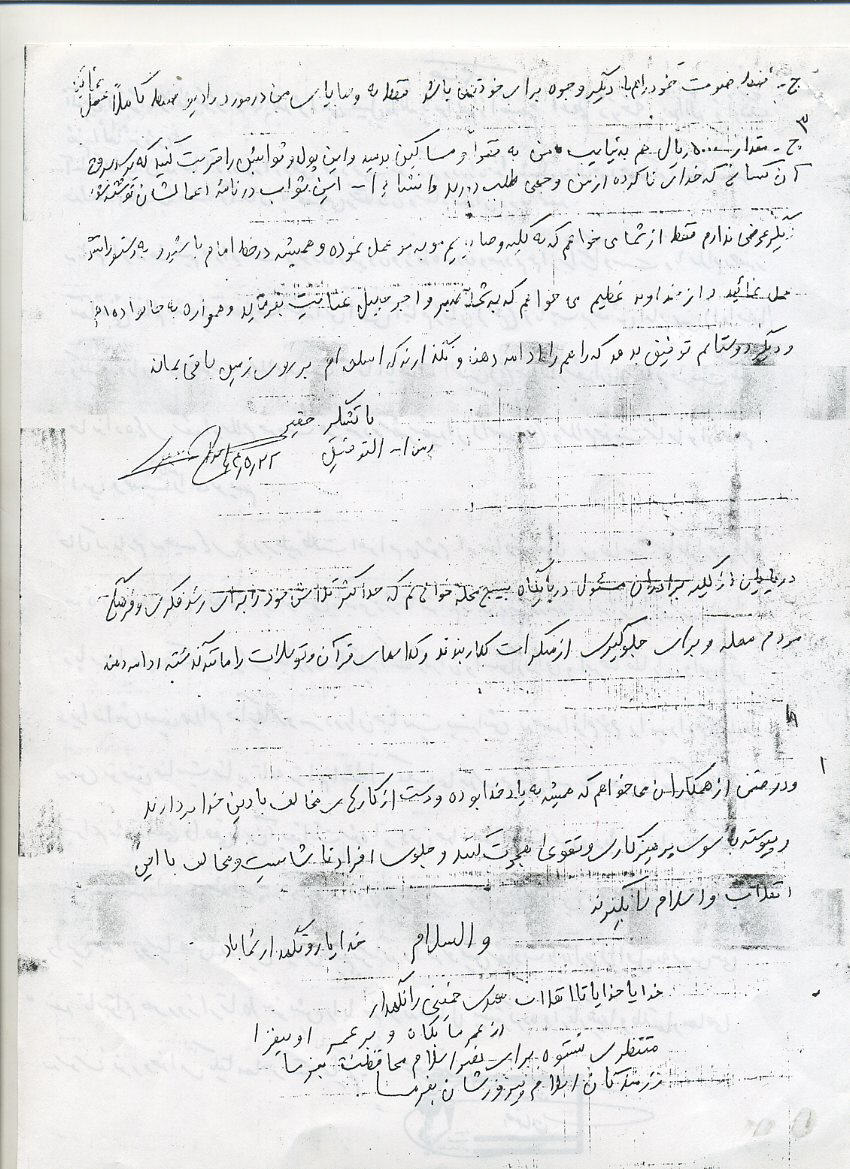 ج - ضبط صوت خود را هم با دیگر وجوه برای خودتان باشد فقط به وصایای من در مورد رادیو ضبط کاملاً عمل نمائید
۳
ج - مقدار ۵۰۰۰ ریال هم به نیابت من به فقرا و مساکین بدهید و این پول و ثوابش را قربت کنید که برسد به روح
آن کسانی که خدای ناکرده از من وجهی طلب دارند و انشاءا... این ثواب در نامه اعمالشان نوشته شود
دیگر عرضی ندارم فقط از شما می خواهم که به کلیه وصایایم مو به مو عمل نموده و همیشه در خط امام باشید و به دستوراتش
عمل نمائید و از خداوند عظیم می خواهم که به شما صبر و اجر جمیل عنایت بفرماید و همواره به خانواده ام
و دیگر دوستانم توفیق بدهد که راهم را ادامه دهند و نگذارند که اسلام بر روی زمین باقی بماند
با تشکر حقیر
و من ا... التوفیق
در پایان از کلیه برادران مسئول در پایگاه بسیج محله خواهانم که حداکثر تلاش خود را برای رشد فکری و فرهنگی
مردم محله و برای جلوگیری از منکرات بکار بندند و کلاسهای قرآن و توسلات را مانند گذشته ادامه دهند
و در ضمن از همکارانم می خواهم که همیشه به یاد خدا بوده و دست از کارهای مخالف با دین خدا بردارند
و پیوسته به سوی پرهیزکاری و تقوی هجرت کنند و جلوی افراد ضد انسانیت و مخالف با این
انقلاب و اسلام را بگیرند
والسلام خدا یار و نگهدارتان باد
خدایا خدایا تا انقلاب مهدی خمینی را نگهدار
از عمر ما بکاه و بر عمر او بیفزا
منتظری نستوه برای نصر اسلام محافظت بفرما
رزمندگان اسلام پیروزشان بفرما